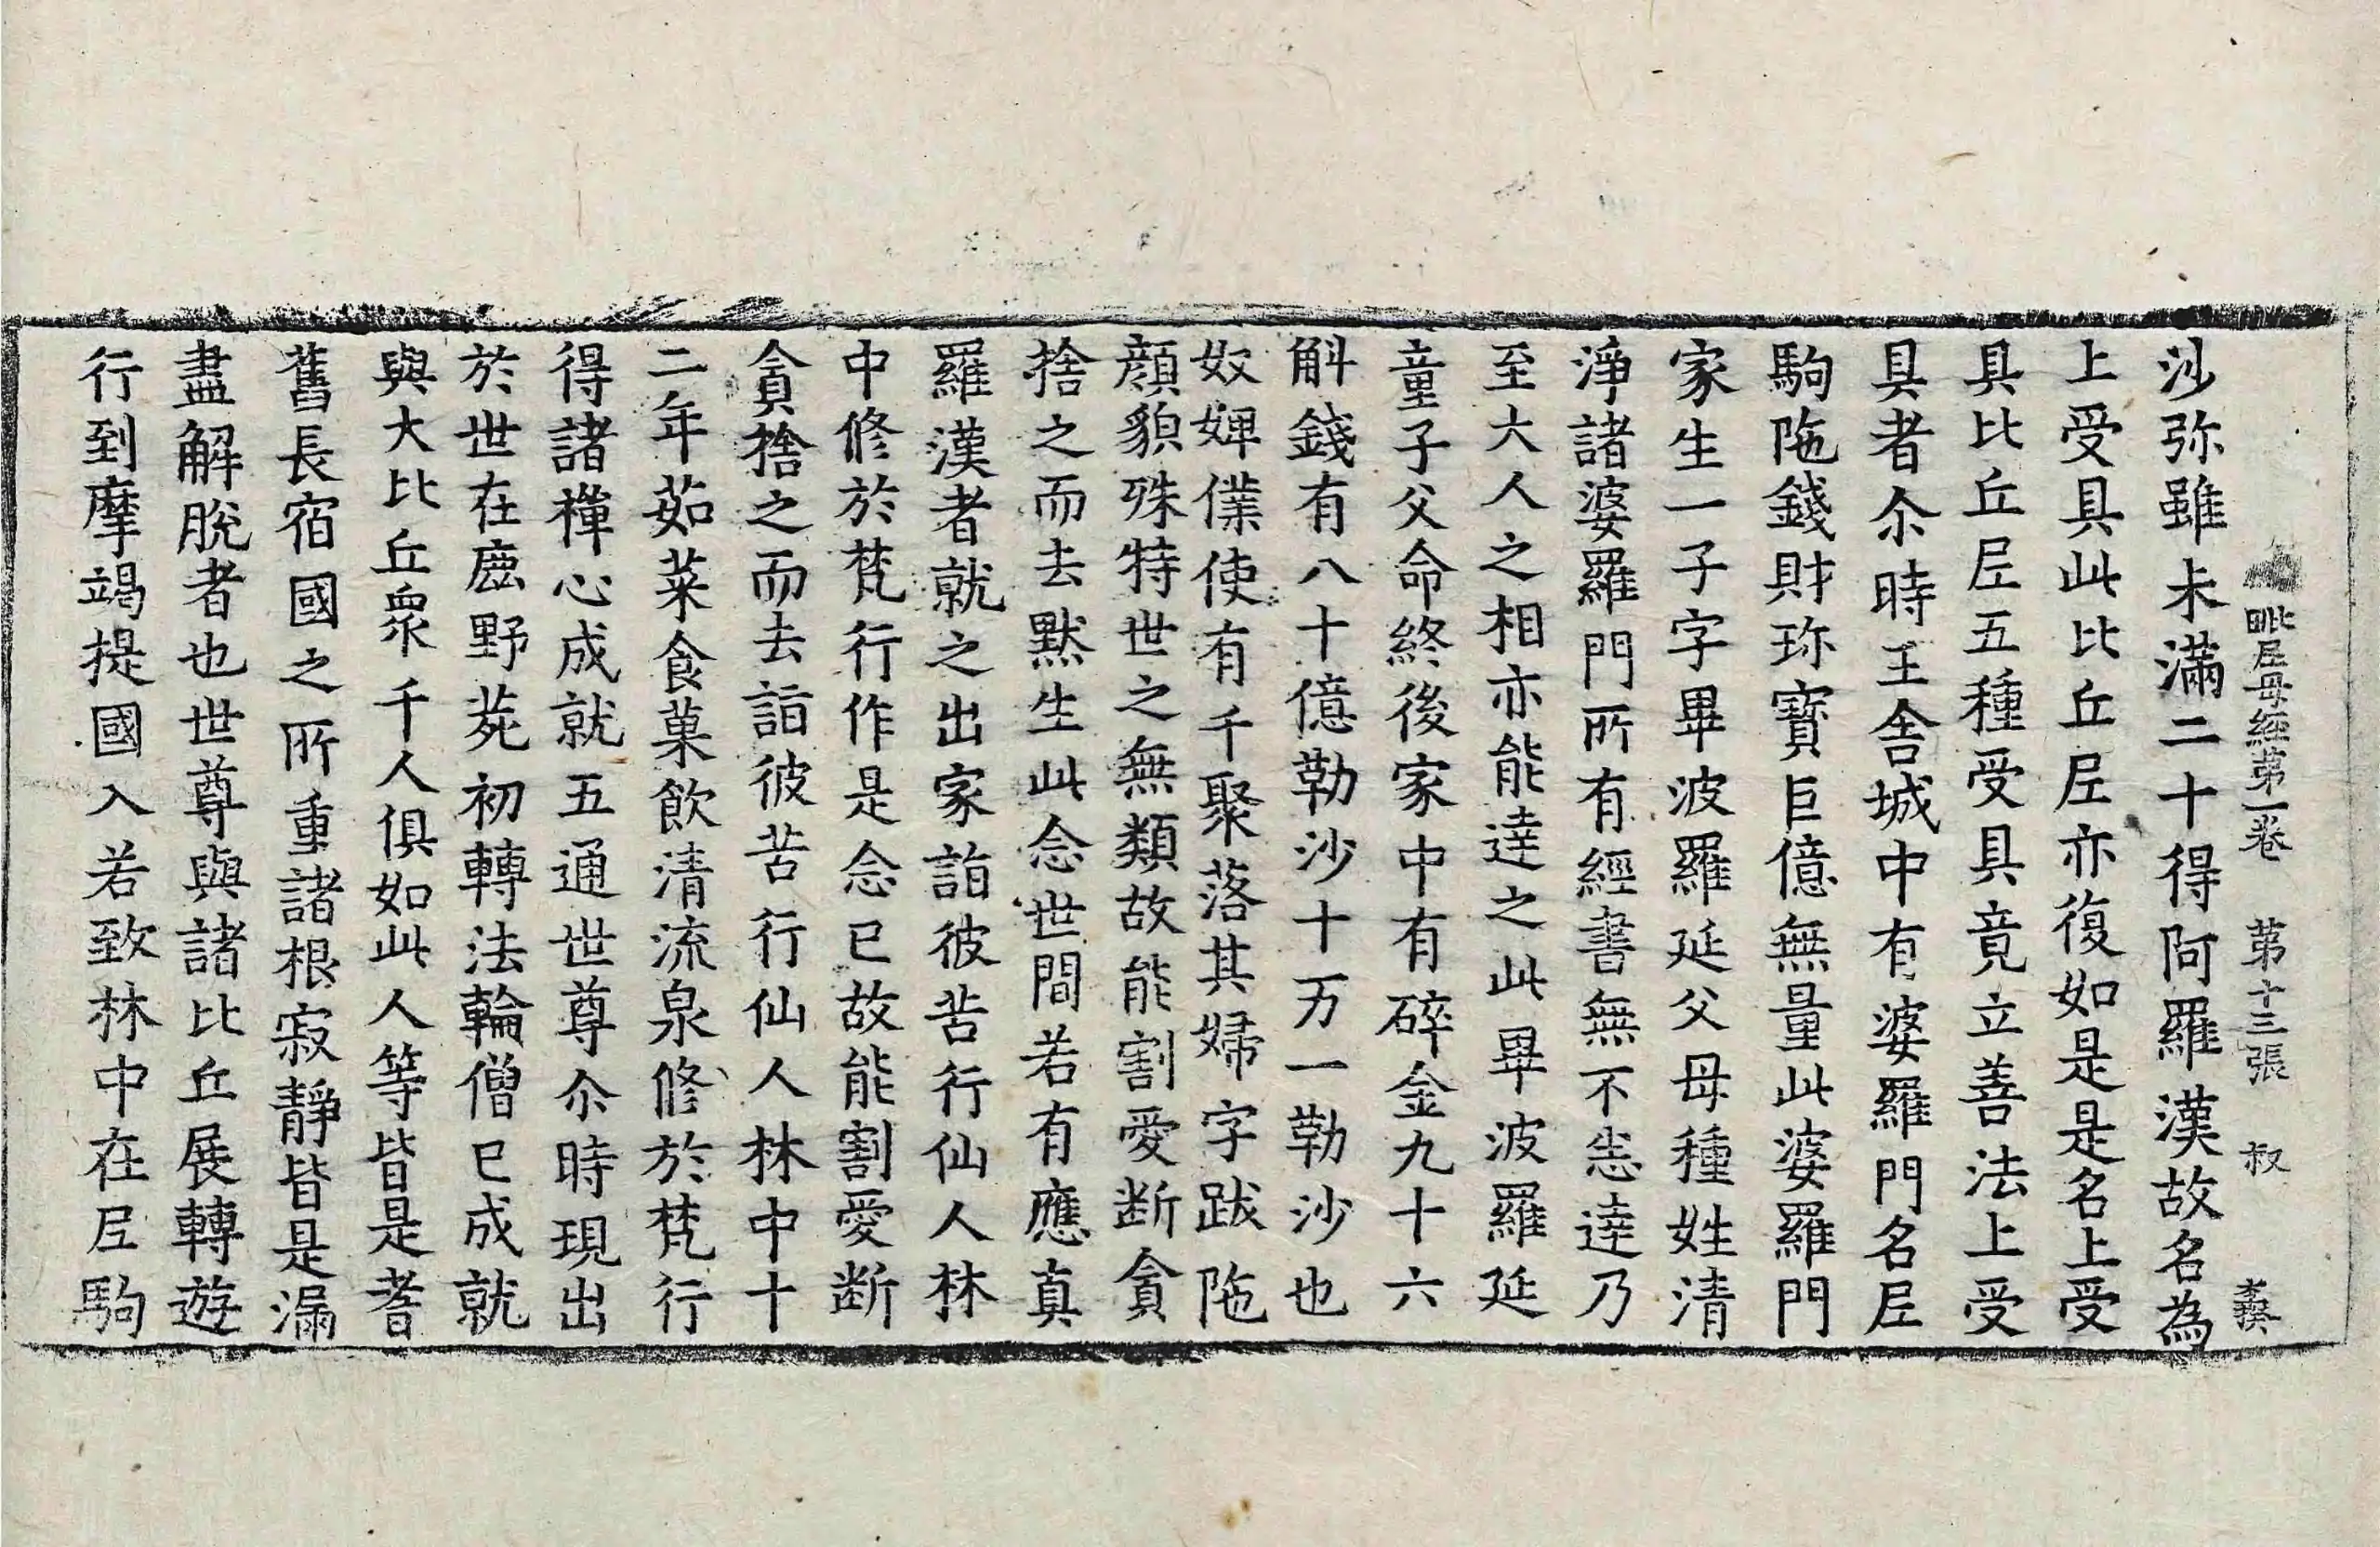 毗𡰱母經第一卷 第十三張 叔
沙弥雖未滿二十得阿羅漢故名為
上受具此比丘𡰱亦復如是是名上受
具比丘𡰱五種受具竟立善法上受
具者尒時王舍城中有婆羅門名𡰱
駒陁錢財珎寶巨億無量此婆羅門
家生一子字畢波羅延父母種姓清
淨諸婆羅門所有經書無不悉達乃
至大人之相亦能達之此畢波羅延
童子父命終後家中有碎金九十六
斛錢有八十億勒沙十万一勒沙也
奴婢僕使有千聚落其婦字跋陁
顏貌殊特世之無類故能割愛断貪
捨之而去默生此念世間若有應真
羅漢者就之出家詣彼苦行仙人林
中修於梵行作是念已故能割愛断
貪捨之而去詣彼苦行仙人林中十
二年茹菜食菓飲清流泉修於梵行
得諸禪心成就五通世尊尒時現出
於世在鹿野苑初轉法輪僧已成就
與大比丘衆千人俱如此人等皆是耆
舊長宿國之所重諸根寂靜皆是漏
盡解脫者也世尊與諸比丘展轉遊
行到摩竭提國入若致林中在𡰱駒